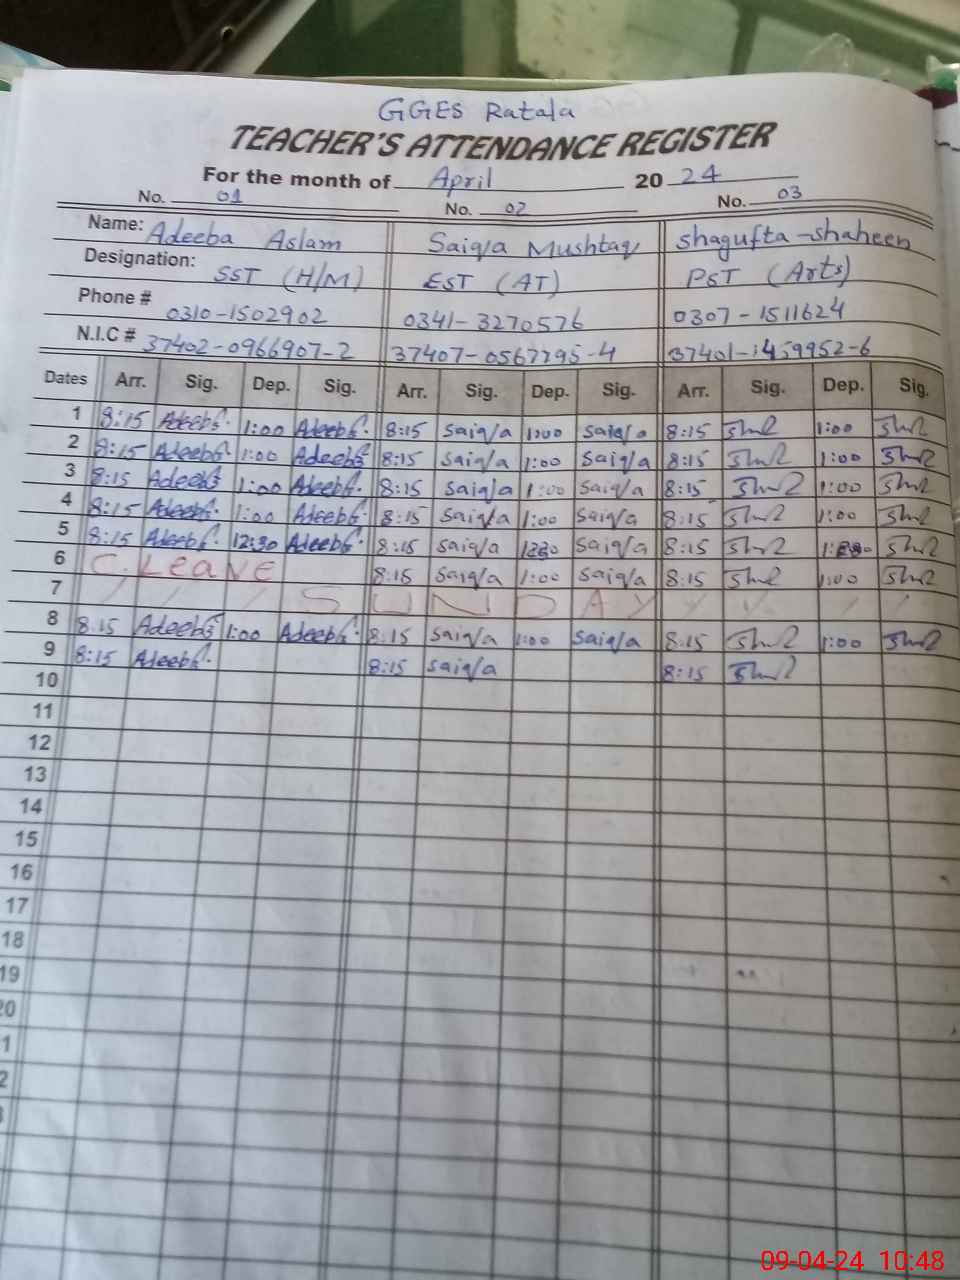 GGES Ratala
TEACHER'S ATTENDANCE REGISTER
For the month of April 2024
No. 01 No. 02 No. 03
Name: Adeeba Aslam Saiqa Mushtaq Shagufta-shaheen
Designation: SST (H/M) EST (AT) PST (Arts)
Phone # 0310-1502902 0341-3270576 0307-1511624
N.I.C # 37402-0966907-2 37407-0567295-4 37401-1459952-6
Dates Arr. Sig. Dep. Sig. Arr. Sig. Dep. Sig. Arr. Sig. Dep. Sig.
1 8:15 Adeeba 1:00 Adeeba 8:15 Saiqa 1:00 Saiqa 8:15 1:00
2 8:15 Adeeba 1:00 Adeeba 8:15 Saiqa 1:00 Saiqa 8:15 1:00
3 8:15 Adeeba 1:00 Adeeba 8:15 Saiqa 1:00 Saiqa 8:15 1:00
4 8:15 Adeeba 1:00 Adeeba 8:15 Saiqa 1:00 Saiqa 8:15 1:00
5 8:15 Adeeba 12:30 Adeeba 8:15 Saiqa 1230 Saiqa 8:15
6 C.Leave 8:15 Saiqa 1:00 Saiqa 8:15 1:00
7 SUNDAY
8 8:15 Adeeba 1:00 Adeeba 8:15 Saiqa 1:00 Saiqa 8:15 1:00
9 8:15 Adeeba 8:15 Saiqa 8:15
10
11
12
13
14
15
16
17
18
19
20
1
2
09-04-24 10:48